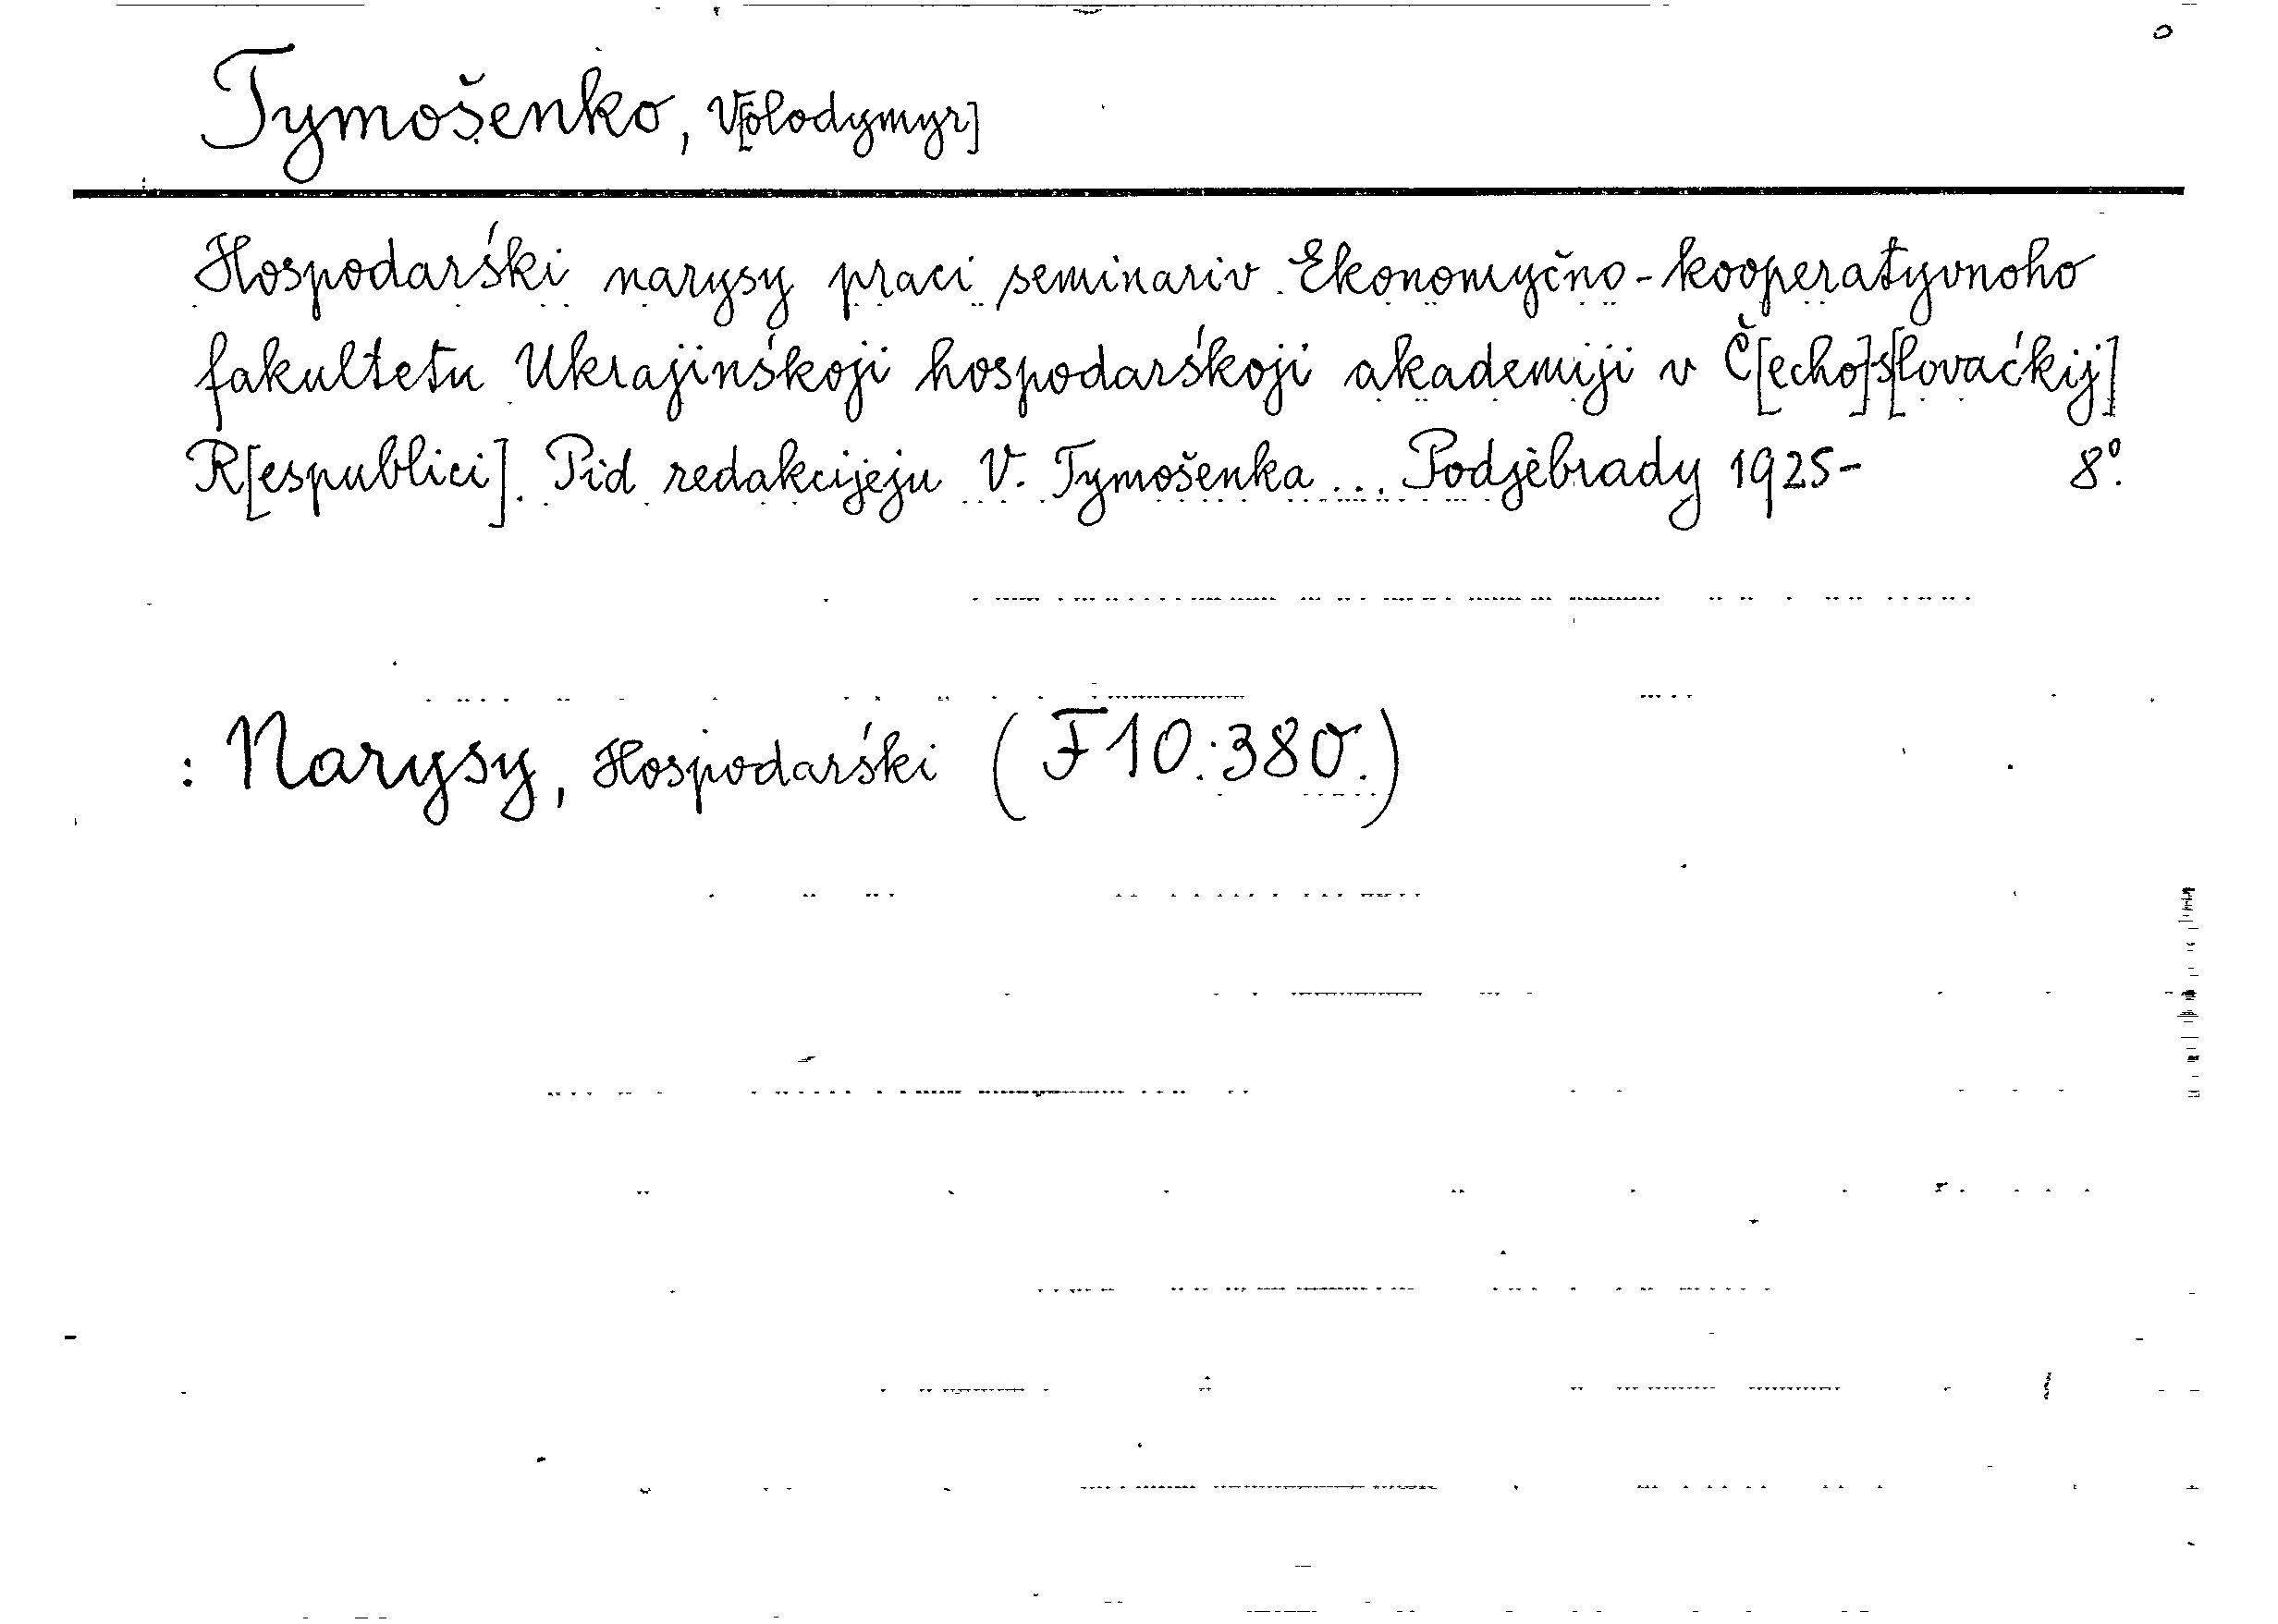 Tymošenko, V[olodymyr]
Hospodaŕski narysy praci seminariv Ekonomyčno-kooperatyvnoho
fakultetu Ukrajinśkoji hospodarśkoji akademiji v Č[echo]s[lovaćkij]
R[espublici]. Pid redakcijeju V. Tymošenka ... Podjěbrady 1925- 8°.
: Narysy, Hospodarśki (F10:380.)